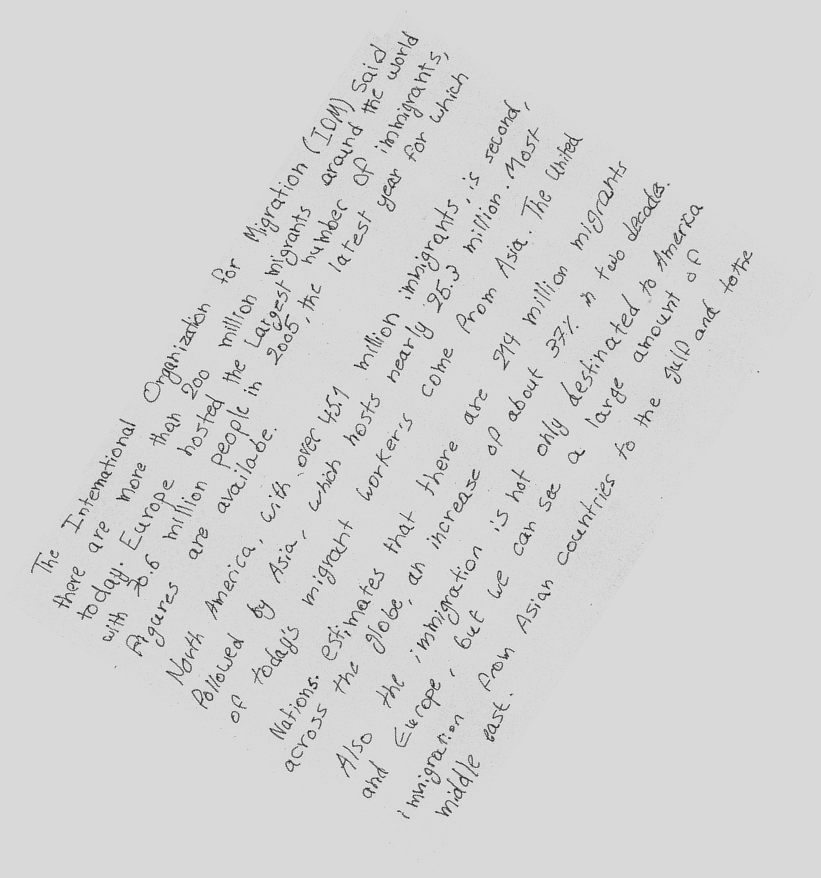 The International Organization for Migration (IOM) said
there are more than 200 million migrants around the world
today. Europe hosted the Largest number of immigrants,
with 70.6 million people in 2005, the latest year for which
Figures are availabe.
North America, with over 45.1 million immigrants, is second,
followed by Asia, which hosts nearly 25.3 million. Most
of today's migrant worker's come from Asia. The United
Nations. estimates that there are 214 million migrants
across the globe, an increase of about 37% in two decades.
Also the immigration is not only destinated to America
and Europe, but we can see a large amount of
immigration from Asian countries to the gulf and to the
middle east.